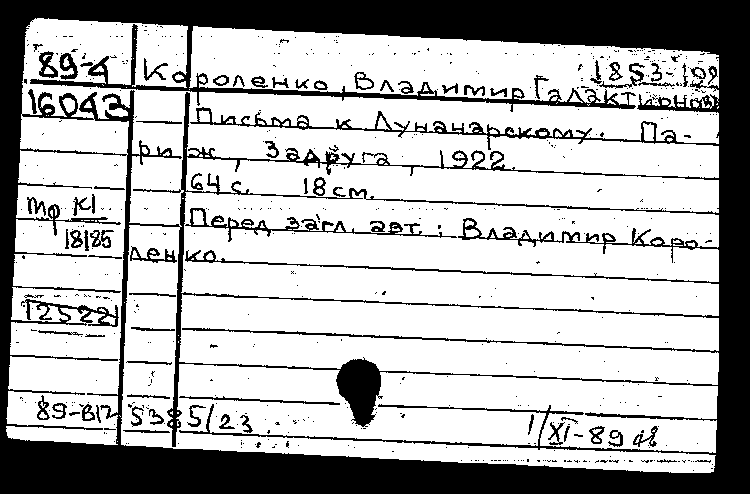 89-4 Короленко, Владимир Галактионов
1853-19
16043 Письма к Луначарскому. Па-
риж, Задруга, 1922.
64 с. 18 см.
Мф К1
18185
Перед загл. авт.: Владимир Коро-
ленко.
12522
89-В12 5385/23
1/XI-89